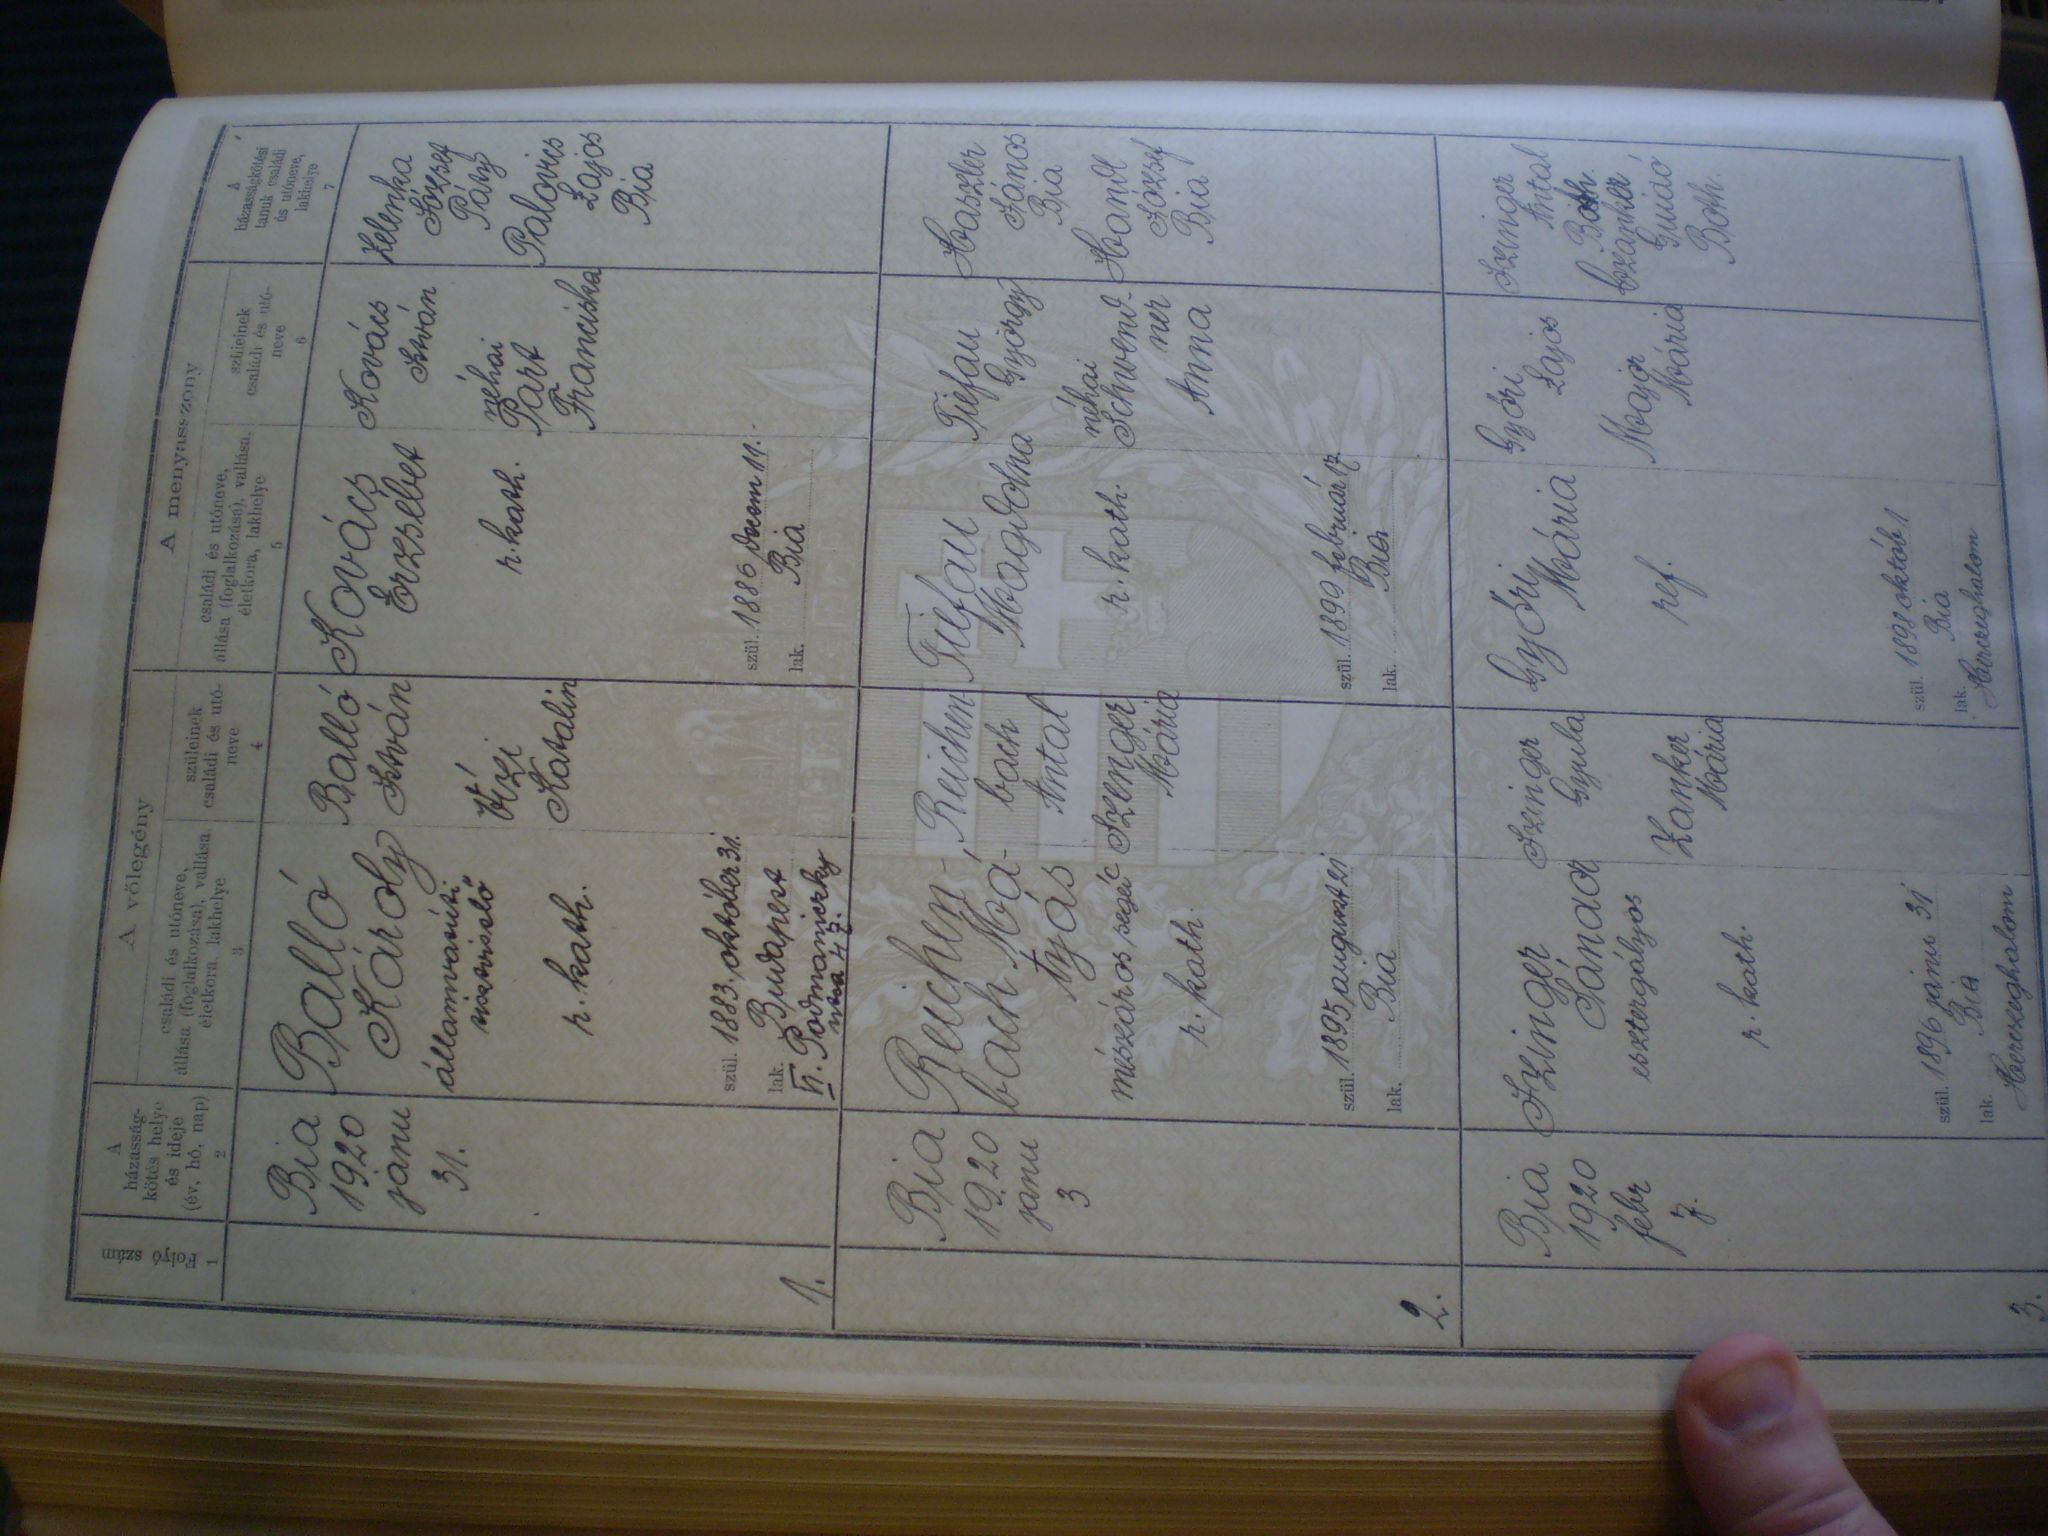 Folyó szám
1
A
házasság-
kötés helye
és ideje
(év, hó, nap)
2
A vőlegény
családi és utóneve,
állása (foglalkozása), vallása
életkora, lakhelye
3
szüleinek
családi és utó-
neve
4
A menyasszony
családi és utóneve,
állása (foglalkozása), vallása,
életkora, lakhelye
5
szüleinek
családi és utó-
neve
6
A
házasságkötési
tanuk családi
és utóneve,
lakhelye
7
1.
Bia
1920
janu
31.
Balló
Károly
államvasúti
r. kath.
szül. 1883. október 31.
lak. Budapest
VI. Podmaniczky
Balló
István
Vízi
Katalin
Kovács
Erzsébet
r. kath.
szül. 1886 decem 11.
lak. Bia
Kovács
István
néhai
Part
Franciska
Zelenka
József
Páty
Palovics
Lajos
Bia
2.
Bia
1920
janu
3
Reichen-
bach Má-
tyás
mészáros segéd
r. kath.
szül. 1895 august 21
lak. Bia
Reichen-
bach
Antal
Szenger
Mária
Tiefau
Magdolna
r. kath.
szül. 1899 február 17
lak. Bia
Tiefau
György
néhai
Schwend-
ner
Anna
Haszler
János
Bia
Handl
József
Bia
3.
Bia
1920
febr
7.
Szinger
Sándor
esztergályos
r. kath.
szül. 1896 janu 31
Bia
lak. Herczeghalom
Szinger
Gyula
Zanker
Mária
Győri
Mária
ref.
szül. 1898 októb 1
Bia
lak. Herczeghalom
Győri
Lajos
Major
Mária
Szinger
Antal
Both.
Guidó
Both.